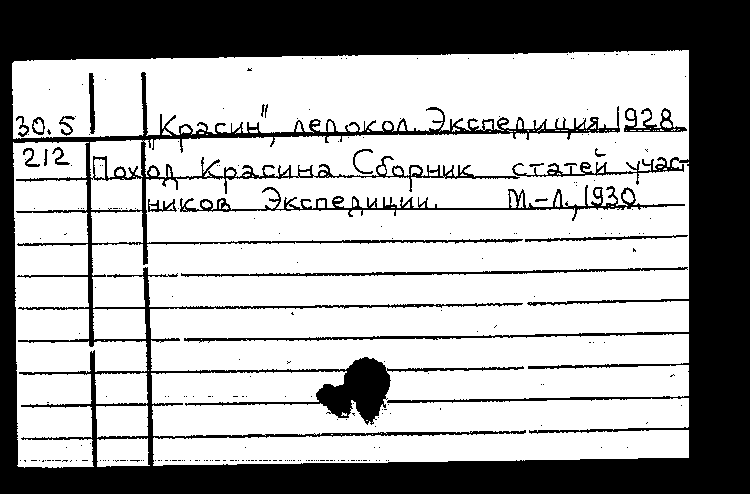 30.5 "Красин", ледокол. Экспедиция. 1928
212 Поход Красина Сборник статей участ-
ников Экспедиции. М.-Л., 1930